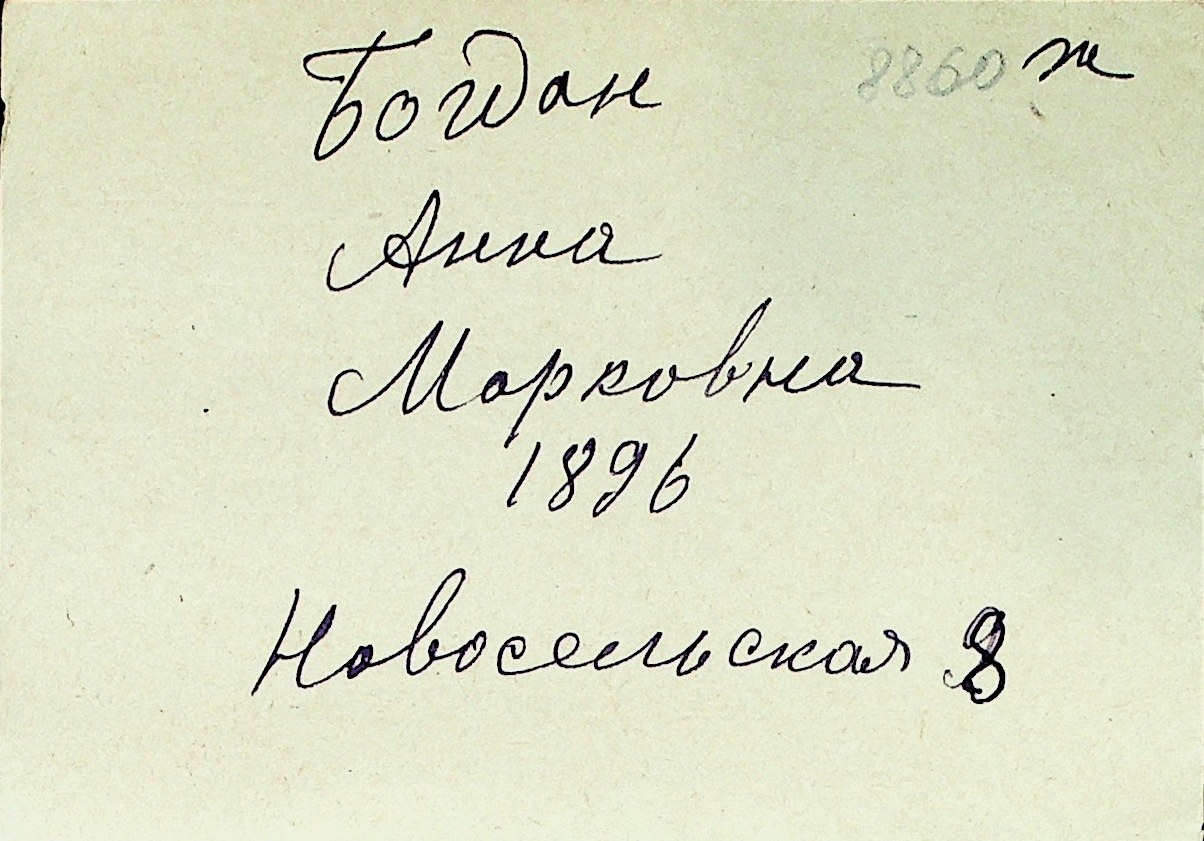 Богдан 8860 ж
Анна
Марковна
1896
Новосельская 8